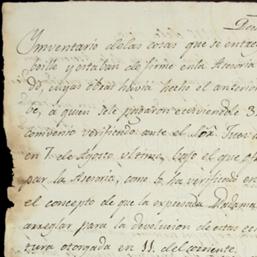 Ynventario de las cosas que se entre
y estaban de firme en la Asesoria
do, cuyas obras havia hecho el anterior
de, á quien se le pagaron
convenio verificado ante el Sor.
en 7. de Agosto ultimo, bajo el que
por la Asesoria, como lo ha verificado en
el concepto de que la expresada
arreglar para la devolucion de estas
tura otorgada en 11. del corriente.